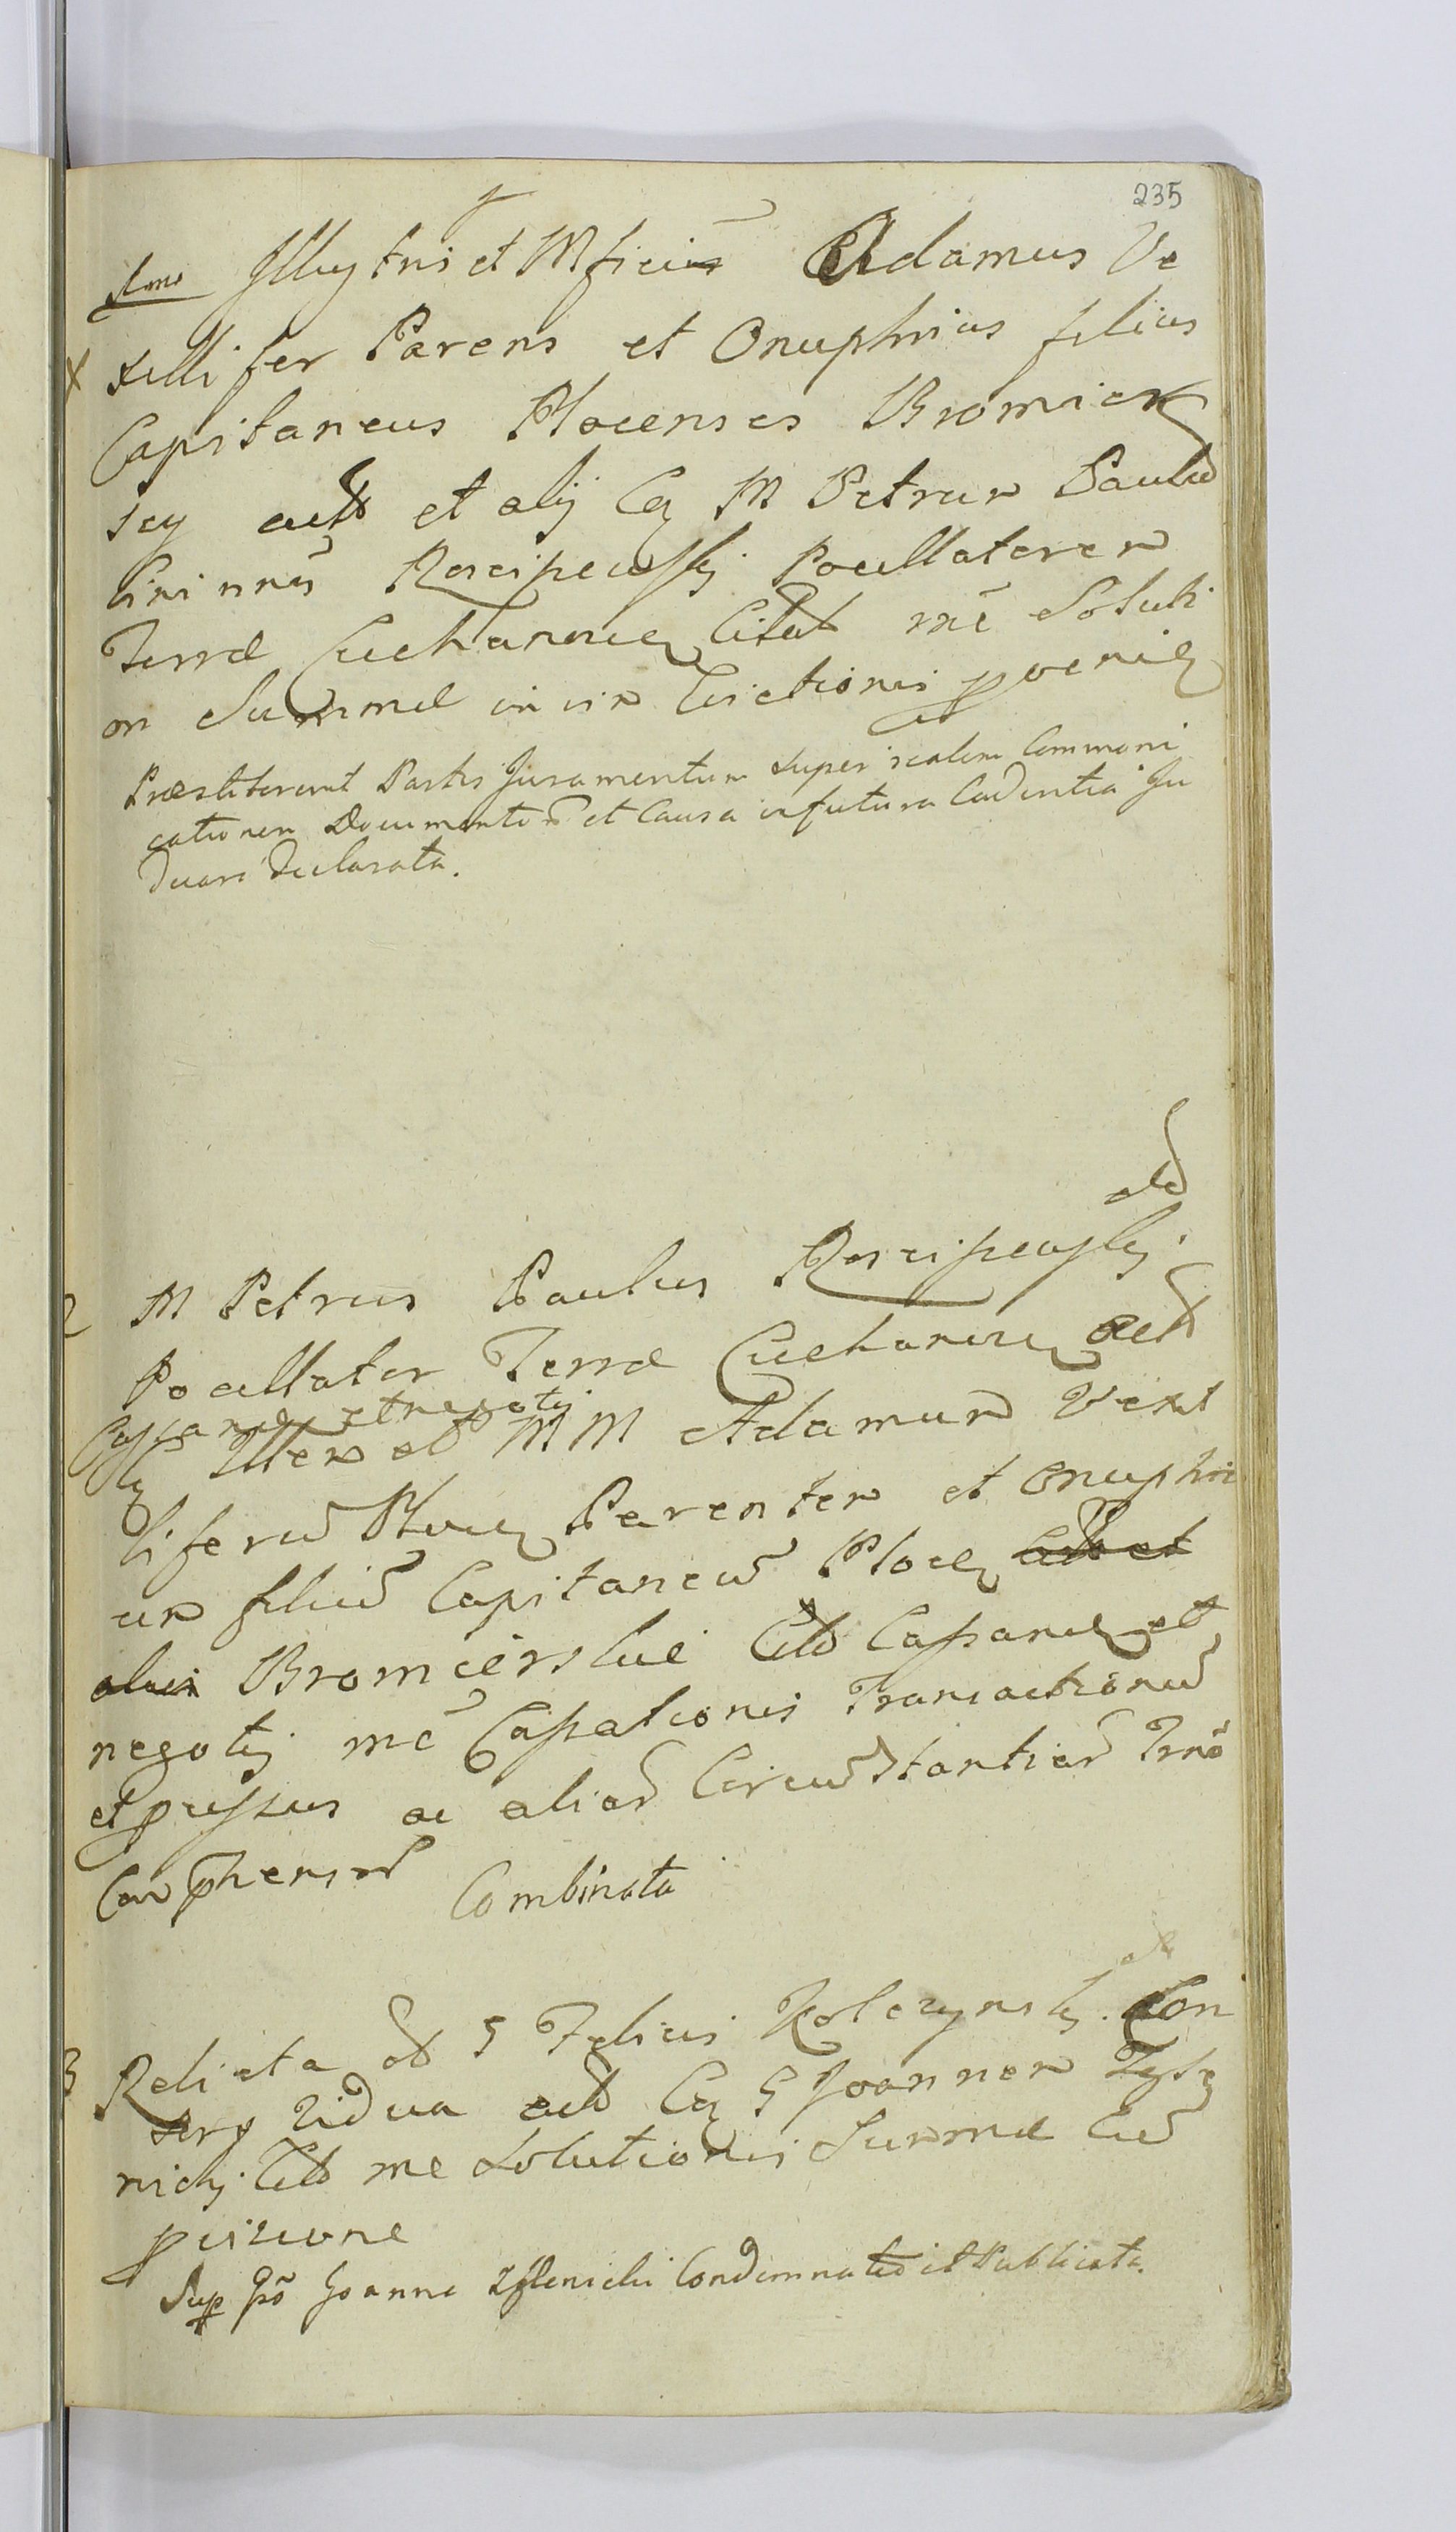 235
Illustris et Mficus Adamus Ve
xillifer Parens et Onuphrius filius
Capitaneus Plocenses Bromier
scy act et alij Ca M Petrum Paulum
Roscipewskj Pocillatorem
Terræ Ciechanoviens Citat rne Soluti
on Summæ in vim Evictionis
Præstiterunt Partes Juramentum super realem Communi
cationem Documentorum et Causa in futura Cadentia Ju
dicari declarata.
ad
2 M Petrus Paulus Roscipewskj
Pocillator Terræ Ciechanovien act
Cassandæ et negotij
Ca Illrem et MM Adamum Vexil
liferum Ploc Parentem et Onuphri
um filium Capitaneum Plocen
Bromierskie Citt Cassand et
negotij rne Cassationis Transactionum
et pressus ac aliar Circumstantiar Trno
Comphensar Combinata
3 Relicta ol G Felicis Kolczynskj Con
sors vidua act Ca G Joannem
nickj Citt rne Solutionis Summæ Cum
provisione
Sup Gso Joanne Condemnatio et Publicata.